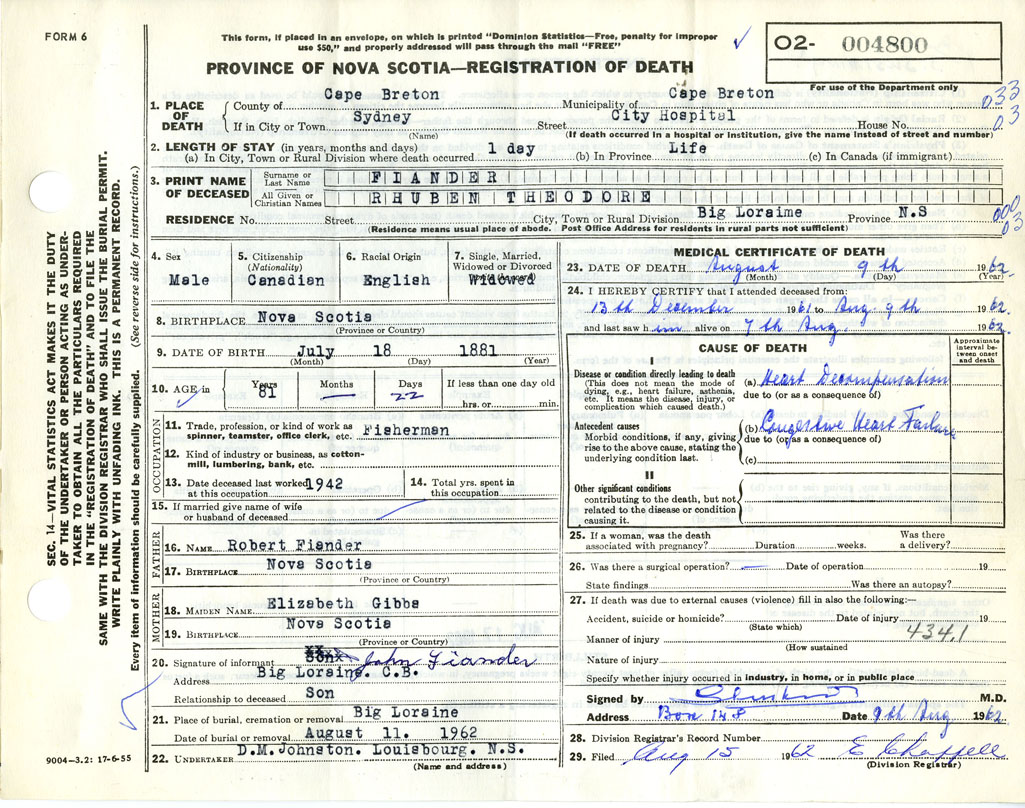 FORM 6
This form, if placed in an envelope, on which is printed "Dominion Statistics—Free, penalty for improper
use $50," and properly addressed will pass through the mail "FREE"
O2- 004800
For use of the Department only
PROVINCE OF NOVA SCOTIA—REGISTRATION OF DEATH
033
03
1. PLACE OF DEATH
County of Cape Breton Municipality of Cape Breton
If in City or Town Sydney Street City Hospital House No.
(Name) (If death occurred in a hospital or institution, give the name instead of street and number)
2. LENGTH OF STAY (in years, months and days)
(a) In City, Town or Rural Division where death occurred 1 day (b) In Province Life (c) In Canada (if immigrant)
3. PRINT NAME OF DECEASED
Surname or Last Name FIANDER
All Given or Christian Names RHUBEN THEODORE
RESIDENCE No. Street City, Town or Rural Division Big Loraime Province N.S
(Residence means usual place of abode. Post Office Address for residents in rural parts not sufficient)
000
03
4. Sex
Male
5. Citizenship
(Nationality)
Canadian
6. Racial Origin
English
7. Single, Married,
Widowed or Divorced
Widowed
8. BIRTHPLACE Nova Scotia
(Province or Country)
9. DATE OF BIRTH July 18 1881
(Month) (Day) (Year)
10. AGE in Years 81 Months — Days 22 If less than one day old
hrs. or min.
OCCUPATION
11. Trade, profession, or kind of work as
spinner, teamster, office clerk, etc. Fisherman
12. Kind of industry or business, as cotton-
mill, lumbering, bank, etc.
13. Date deceased last worked 1942
at this occupation
14. Total yrs. spent in
this occupation
15. If married give name of wife
or husband of deceased
FATHER
16. NAME Robert Fiander
17. BIRTHPLACE Nova Scotia
(Province or Country)
MOTHER
18. MAIDEN NAME Elizabeth Gibbs
19. BIRTHPLACE Nova Scotia
(Province or Country)
20. Signature of informant John Fiander
Address Big Loraine. C.B.
Relationship to deceased Son
21. Place of burial, cremation or removal Big Loraine
Date of burial or removal August 11. 1962
22. UNDERTAKER D.M.Johnston. Louisbourg. N.S.
(Name and address)
MEDICAL CERTIFICATE OF DEATH
23. DATE OF DEATH August 9th 1962
(Month) (Day) (Year)
24. I HEREBY CERTIFY that I attended deceased from:
13th December 1961 to Aug. 9th 1962
and last saw him alive on 7th Aug. 1962.
CAUSE OF DEATH
Approximate
interval be-
tween onset
and death
I
Disease or condition directly leading to death
(This does not mean the mode of
dying, e.g., heart failure, asthenia,
etc. It means the disease, injury, or
complication which caused death.)
(a) Heart Decompensation
due to (or as a consequence of)
Antecedent causes
Morbid conditions, if any, giving
rise to the above cause, stating the
underlying condition last.
(b) Congestive Heart Failure
due to (or as a consequence of)
(c)
II
Other significant conditions
contributing to the death, but not
related to the disease or condition
causing it.
25. If a woman, was the death
associated with pregnancy? Duration weeks. Was there
a delivery?
26. Was there a surgical operation? — Date of operation 19
State findings Was there an autopsy?
27. If death was due to external causes (violence) fill in also the following:—
Accident, suicide or homicide? Date of injury 19
(State which)
434.1
Manner of injury
(How sustained
Nature of injury
Specify whether injury occurred in industry, in home, or in public place
Signed by M.D.
Address Box 148 Date 9th Aug 1962
28. Division Registrar's Record Number
29. Filed Aug 15 1962 E Chappell
(Division Registrar)
SEC. 14—VITAL STATISTICS ACT MAKES IT THE DUTY
OF THE UNDERTAKER OR PERSON ACTING AS UNDER-
TAKER TO OBTAIN ALL THE PARTICULARS REQUIRED
IN THE "REGISTRATION OF DEATH" AND TO FILE THE
SAME WITH THE DIVISION REGISTRAR WHO SHALL ISSUE THE BURIAL PERMIT.
WRITE PLAINLY WITH UNFADING INK. THIS IS A PERMANENT RECORD.
Every item of information should be carefully supplied. (See reverse side for instructions.)
9004—3.2: 17-6-55